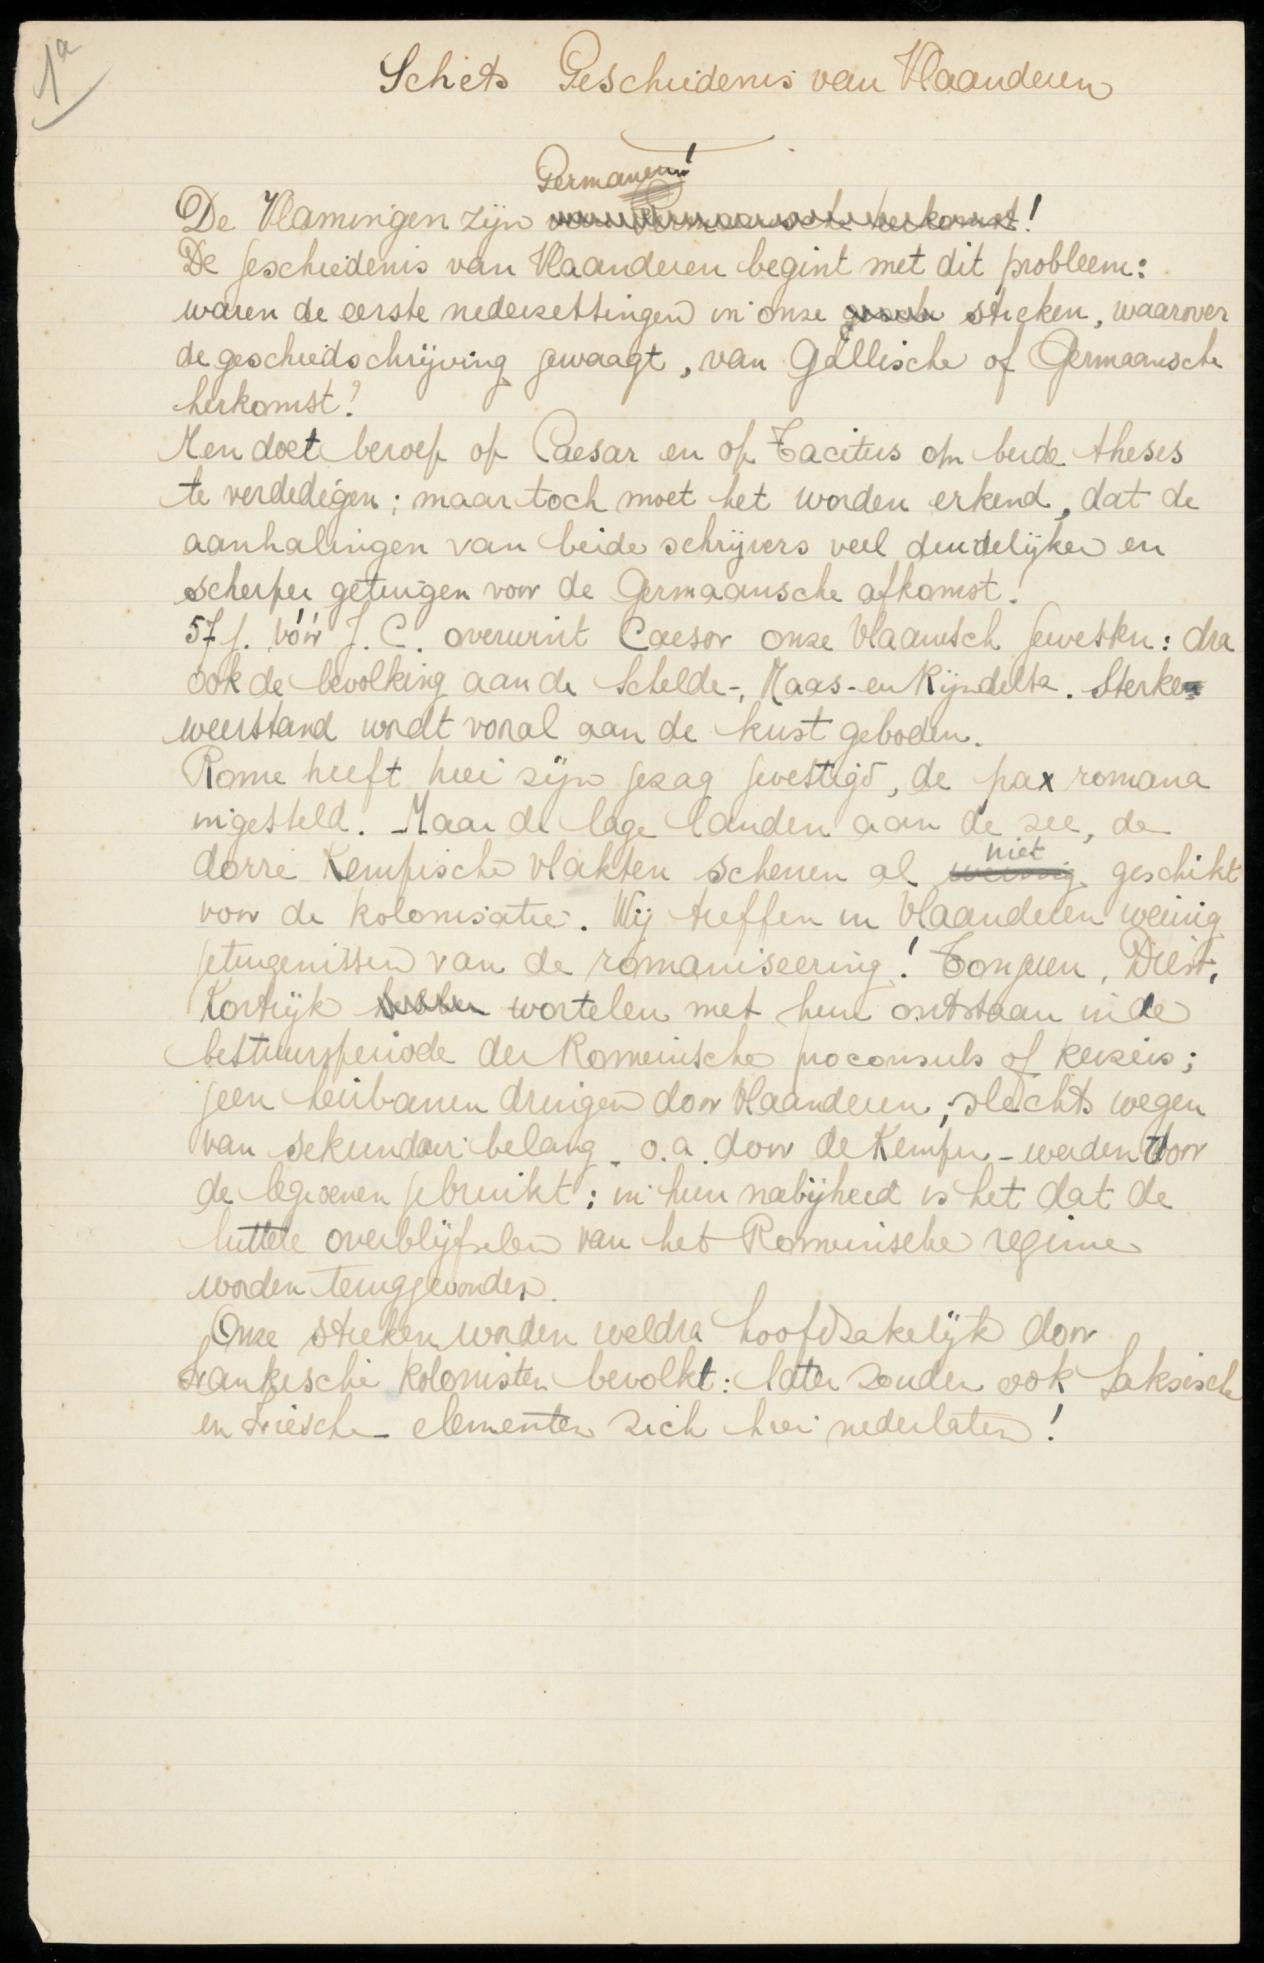 1a
Schets Geschiedenis van Vlaanderen
Germanen!
De Vlamingen zijn van Germaansche herkomst!
De geschiedenis van Vlaanderen begint met dit probleem:
waren de eerste nederzettingen in onze streken, waarover
de geschiedschrijving gewaagt, van Gallische of Germaansche
herkomst?
Men doet beroep op Caesar en op Tacitus om beide theses
te verdedigen; maar toch moet het worden erkend, dat de
aanhalingen van beide schrijvers veel duidelijker en
scherper getuigen voor de Germaansche afkomst!
57 j. vóór J. C. overwint Caesar onze Vlaamsch gewesten: dra
ook de bevolking aan de Schelde-, Maas- en Rijndelta. Sterke
weerstand wordt vooral aan de kust geboden.
Rome heeft hier zijn gezag gevestigd, de pax romana
ingesteld. Maar de lage landen aan de zee, de
niet
dorre Kempische vlakten schenen al weinig geschikt
voor de kolonisatie. Wij treffen in Vlaanderen weinig
getuigenissen van de romaniseering! Tongeren, Diest,
Kortrijk hebben wortelen met hun ontstaan in de
bestuursperiode der Romeinsche proconsuls of keizers;
geen heirbanen dringen door Vlaanderen, slechts wegen
van sekundair belang - o.a. door de Kempen - werden door
de legioenen gebruikt; in hun nabijheid is het dat de
luttele overblijfselen van het Romeinsche regime
worden teruggevonden.
Onze streken worden weldra hoofdzakelijk door
Frankische kolonisten bevolkt: later zouden ook Saksische
en Friesche elementen zich hier nederlaten!